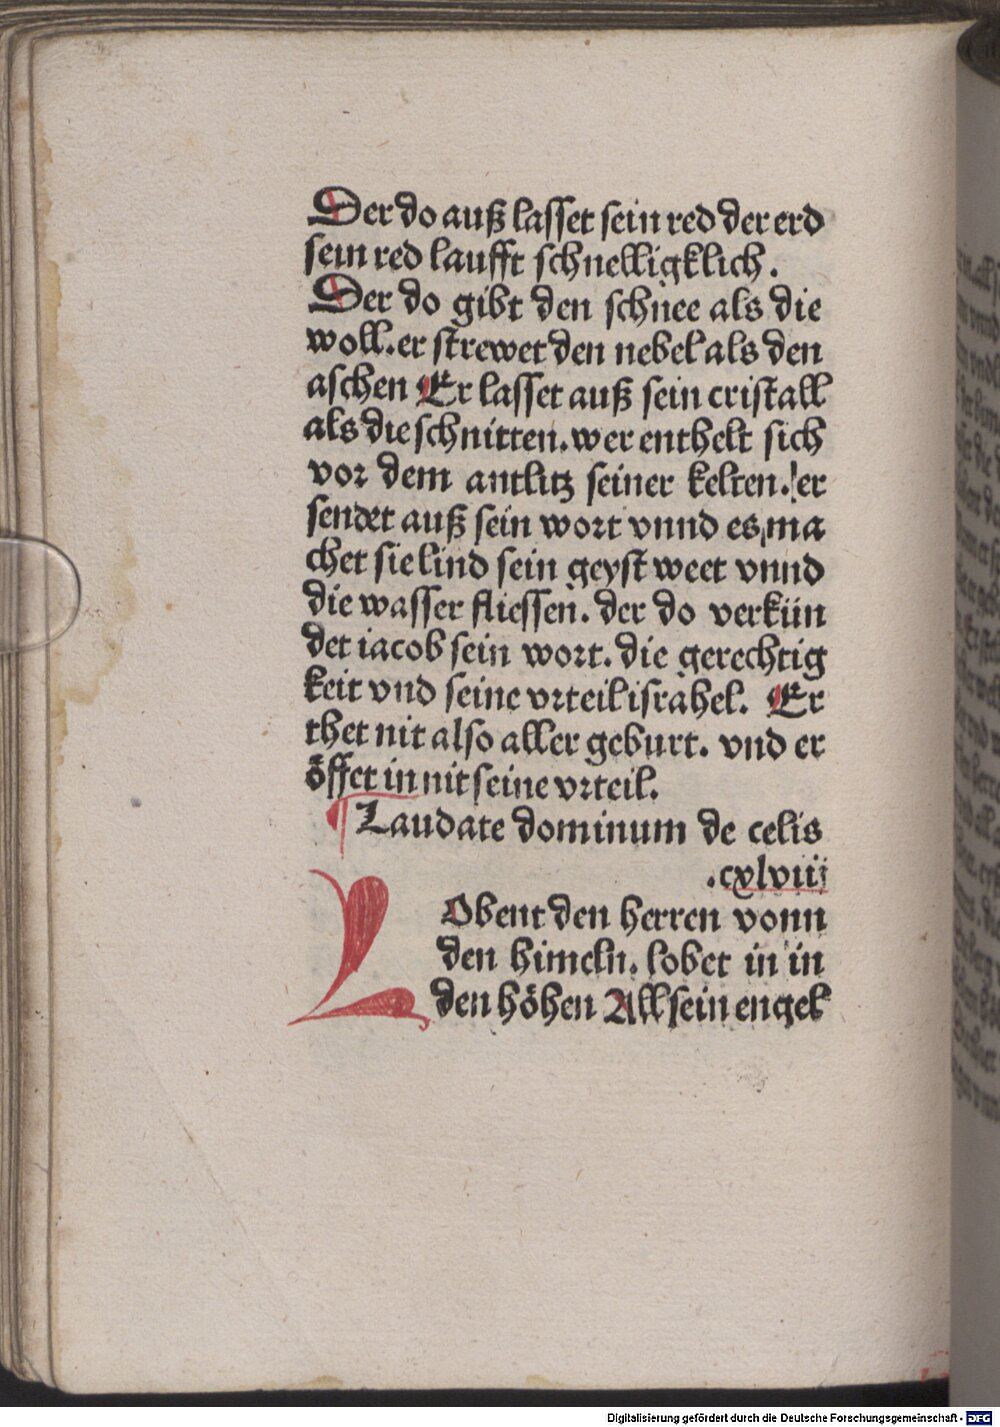 Der do auß lasset sein red der erd
sein red laufft schnelligklich.
Der do gibt den schnee als die
woll. er strewet den nebel als den
aschen Er lasset auß sein cristall
als die schnitten. wer enthelt sich
vor dem antlitz seiner kelten. er
sendet auß sein wort vnnd es ma
chet sie lind sein geyst weet vnnd
die wasser fliessen. der do verkün
det iacob sein wort. die gerechtig
keit vnd seine vrteil israhel. Er
thet nit also aller geburt. vnd er
öffet in nit seine vrteil.
¶ Laudate dominum de celis
.cxlviij
LObent den herren vonn
den himeln. lobet in in
den höhen All sein engel
Digitalisierung gefördert durch die Deutsche Forschungsgemeinschaft - DFG